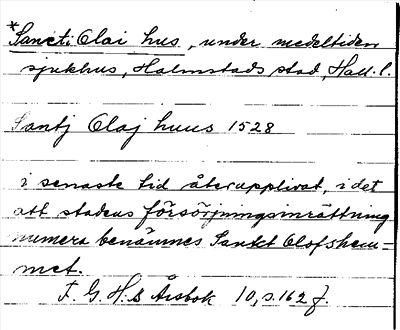 *Sancti Olai hus, under medeltiden
sjukhus, Halmstads stad, Hall. l.
Santj Olaj huus 1528
i senaste tid återupplivat, i det
att stadens försörjningsinrättning
numera benämnes Sankt Olofshem=
met.
F. G. H:s Årsbok 10, s. 162 f.